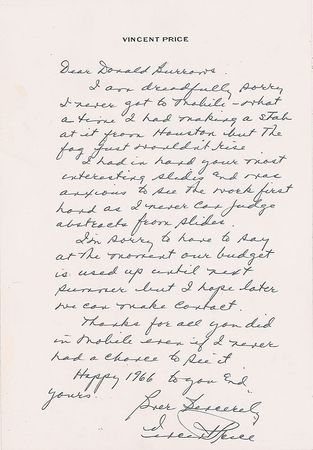 VINCENT PRICE
Dear Donald Burrows.
I am dreadfully sorry
I never got to Mobile - what
a time I had making a stab
at it from Houston but the
fog just wouldn't rise
I had in hand your most
interesting slides and was
anxious to see the work first
hand as I never can judge
abstracts from slides.
I'm sorry to have to say
at the moment our budget
is used up until next
summer but I hope later
we can make contact.
Thanks for all you did
in Mobile even if I never
had a chance to see it.
Happy 1966 to you and
yours.
Ever Sincerely
Vincent Price